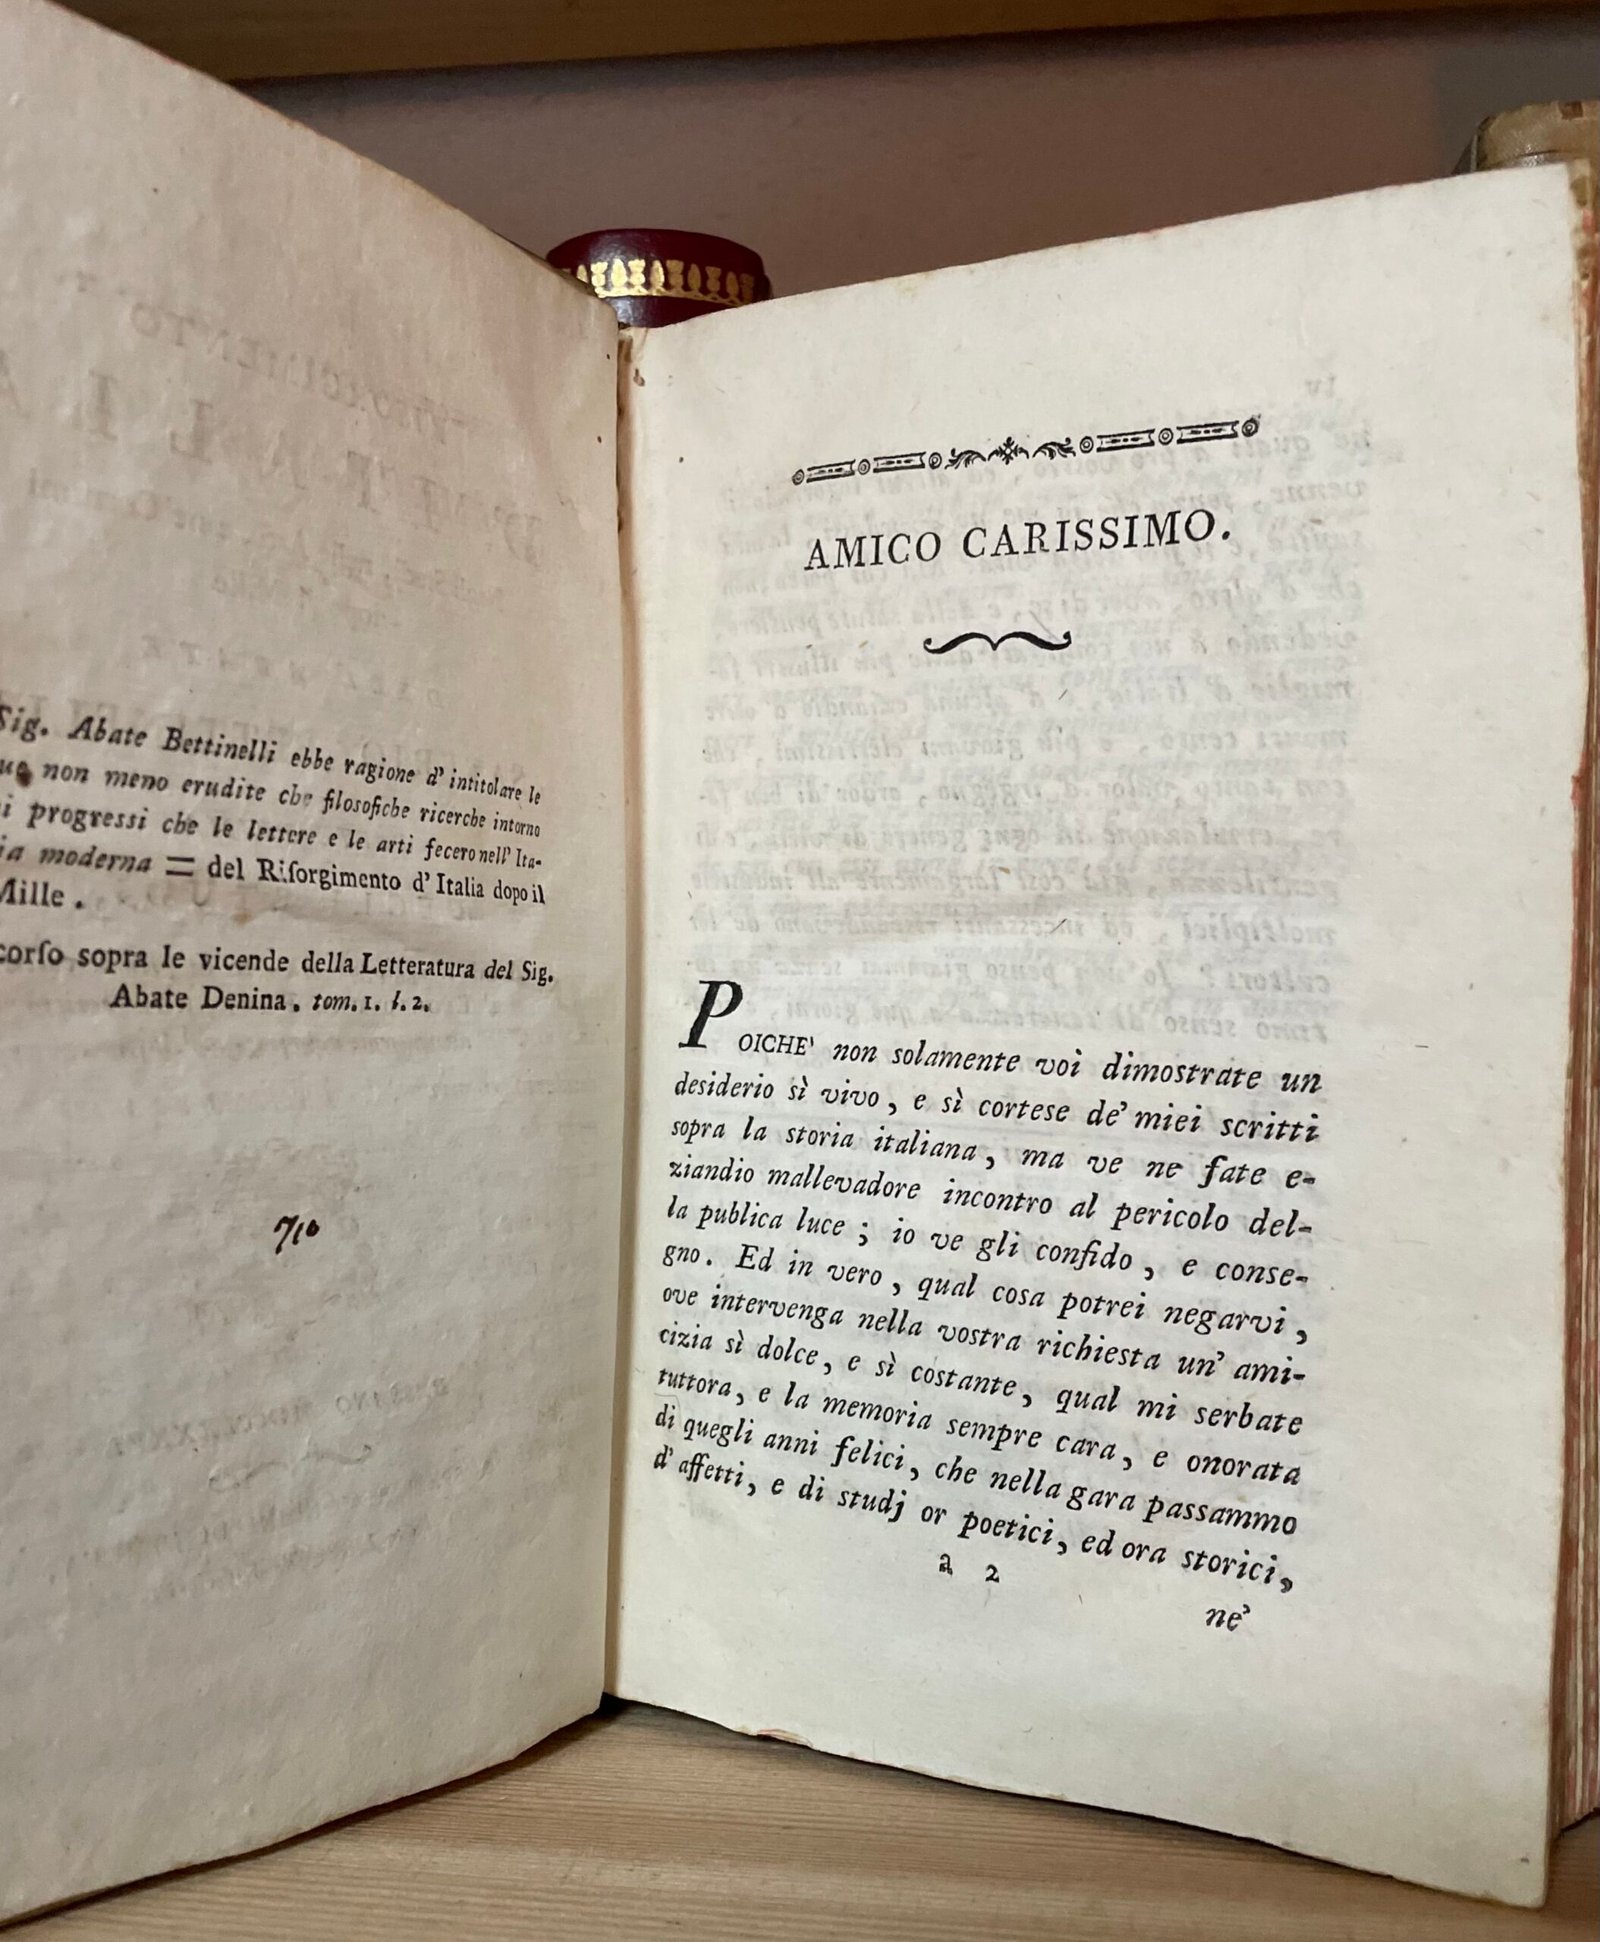 Sig. Abate Bettinelli ebbe ragione d' intitolare le
non meno erudite che filosofiche ricerche intorno
progressi che le lettere e le arti fecero nell' Ita-
moderna = del Riſorgimento d' Italia dopo il
Mille .
corſo sopra le vicende della Letteratura del Sig.
Abate Denina . tom. 1. l. 2.
710
AMICO CARISSIMO.
POICHE' non solamente voi dimostrate un
desiderio sì vivo , e sì cortese de' miei scritti
sopra la storia italiana , ma ve ne fate e-
ziandio mallevadore incontro al pericolo del-
la publica luce ; io ve gli confido , e conse-
gno . Ed in vero , qual cosa potrei negarvi ,
ove intervenga nella vostra richiesta un' ami-
cizia sì dolce , e sì costante , qual mi serbate
tuttora , e la memoria sempre cara , e onorata
di quegli anni felici , che nella gara passammo
d' affetti , e di studj or poetici , ed ora storici ,
a 2
ne'